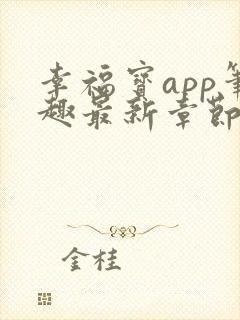 幸福宝app笔
趣最新章节
金桂